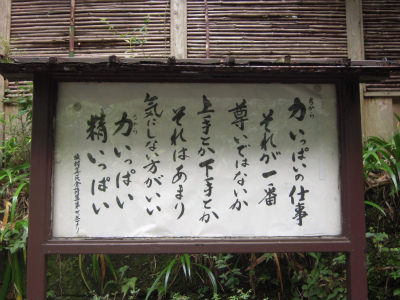 力いっぱいの仕事
それが一番
尊いではないか
上手とか下手とか
それはあまり
気にしない方がいい
力いっぱい
精いっぱい